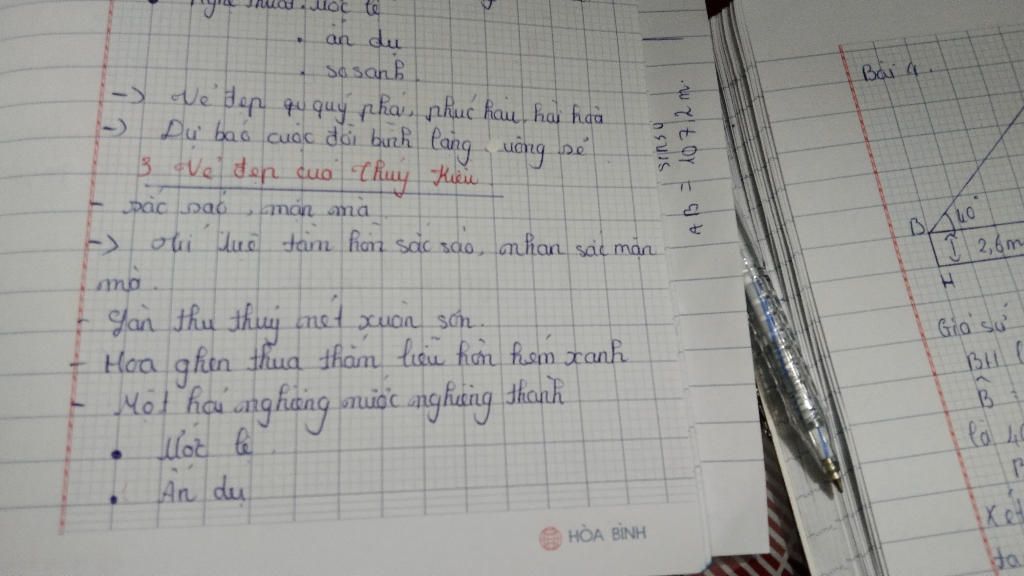 Nghệ thuật: Ước lệ
• ẩn dụ
• so sánh
-> Vẻ đẹp quý phái, phúc hậu, hài hoà
-> Dự báo cuộc đời bình lặng suông sẻ
3 Vẻ đẹp của Thuý Kiều
- sắc sảo, mặn mà
-> trí tuệ tâm hồn sắc sảo, nhan sắc mặn
mà.
- Làn thu thuỷ nét xuân sơn.
- Hoa ghen thua thắm liễu hờn kém xanh
- Một hai nghiêng nước nghiêng thành
• Ước lệ
• Ẩn dụ
HÒA BÌNH
sin50
AB = 1072 m.
Bài 4.
B 40°
2,6m
H
Giả sử
BH
B̂ =
là 40
Xét
ta